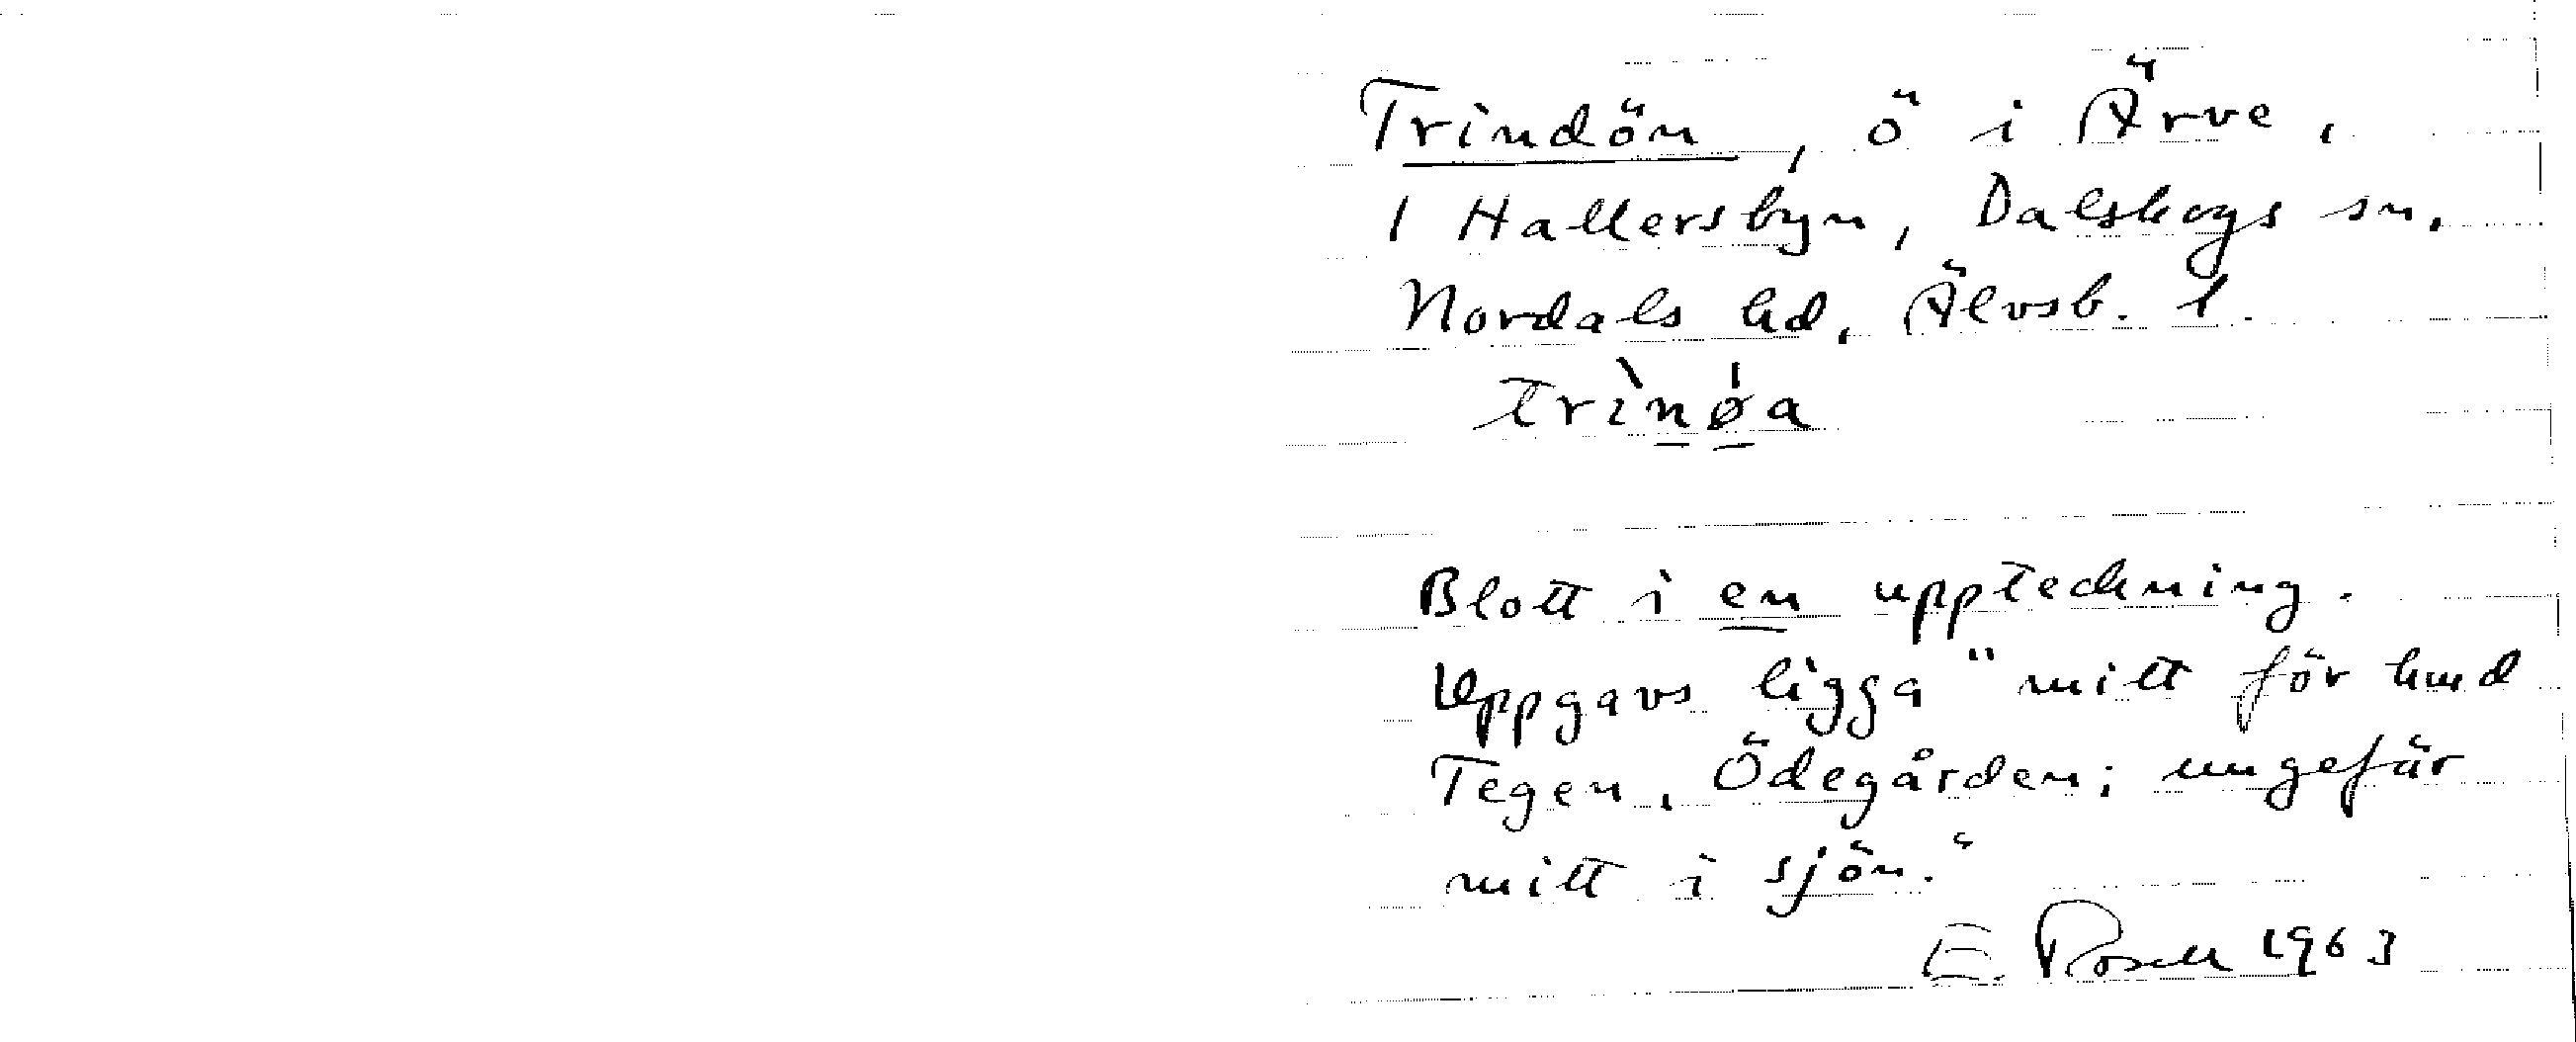 Trindön, ö i Ärve,
1 Hallersbyn, Dalskogs sn.
Nordals hd, Älvsb. l.
trìnǿa
Blott i en uppteckning.
Uppgavs ligga "mitt för hmd
Tegen, Ödegården; ungefär
mitt i sjön."
E. Rosell 1963